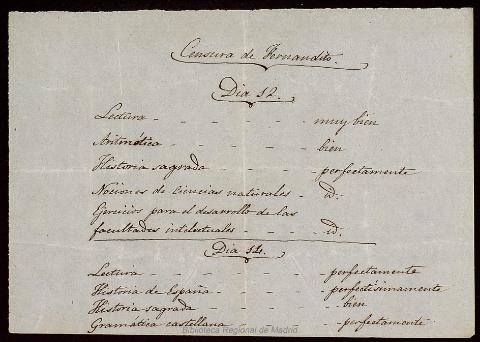 Censura de Fernandito.
Dia 12.
Lectura - - - - - - muy bien
Aritmética - - - - - bien
Historia sagrada - - - - perfectamente
Nociones de ciencias naturales - id.
Ejercicios para el desarrollo de las
facultades intelectuales - - - - id.
Dia 14.
Lectura - - - - - - perfectamente
Historia de España - - - - perfectisimamente
Historia sagrada - - - - bien
Gramática castellana - - - - perfectamente
Biblioteca Regional de Madrid